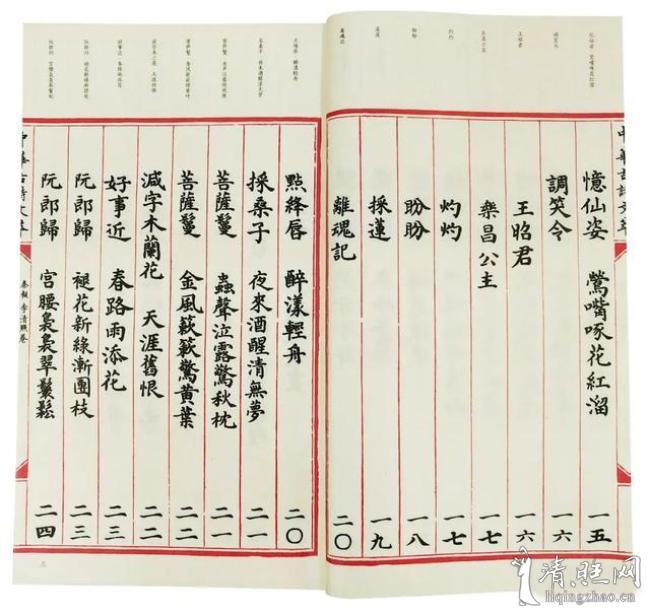 憶仙姿 鶯嘴啄花紅溜 一五
調笑令 一六
王昭君 一六
樂昌公主 一七
灼灼 一七
盼盼 一八
採蓮 一九
離魂記 二〇
點絳唇 醉漾輕舟 二〇
採桑子 夜來酒醒清無夢 二一
菩薩鬘 蟲聲泣露驚秋枕 二一
菩薩鬘 金風簌簌驚黃葉 二二
減字木蘭花 天涯舊恨 二二
好事近 春路雨添花 二三
阮郎歸 褪花新綠漸團枝 二三
阮郎歸 宮腰裊裊翠鬟鬆 二四
秦觀 李清照卷
清旺网
liqingzhao.cn